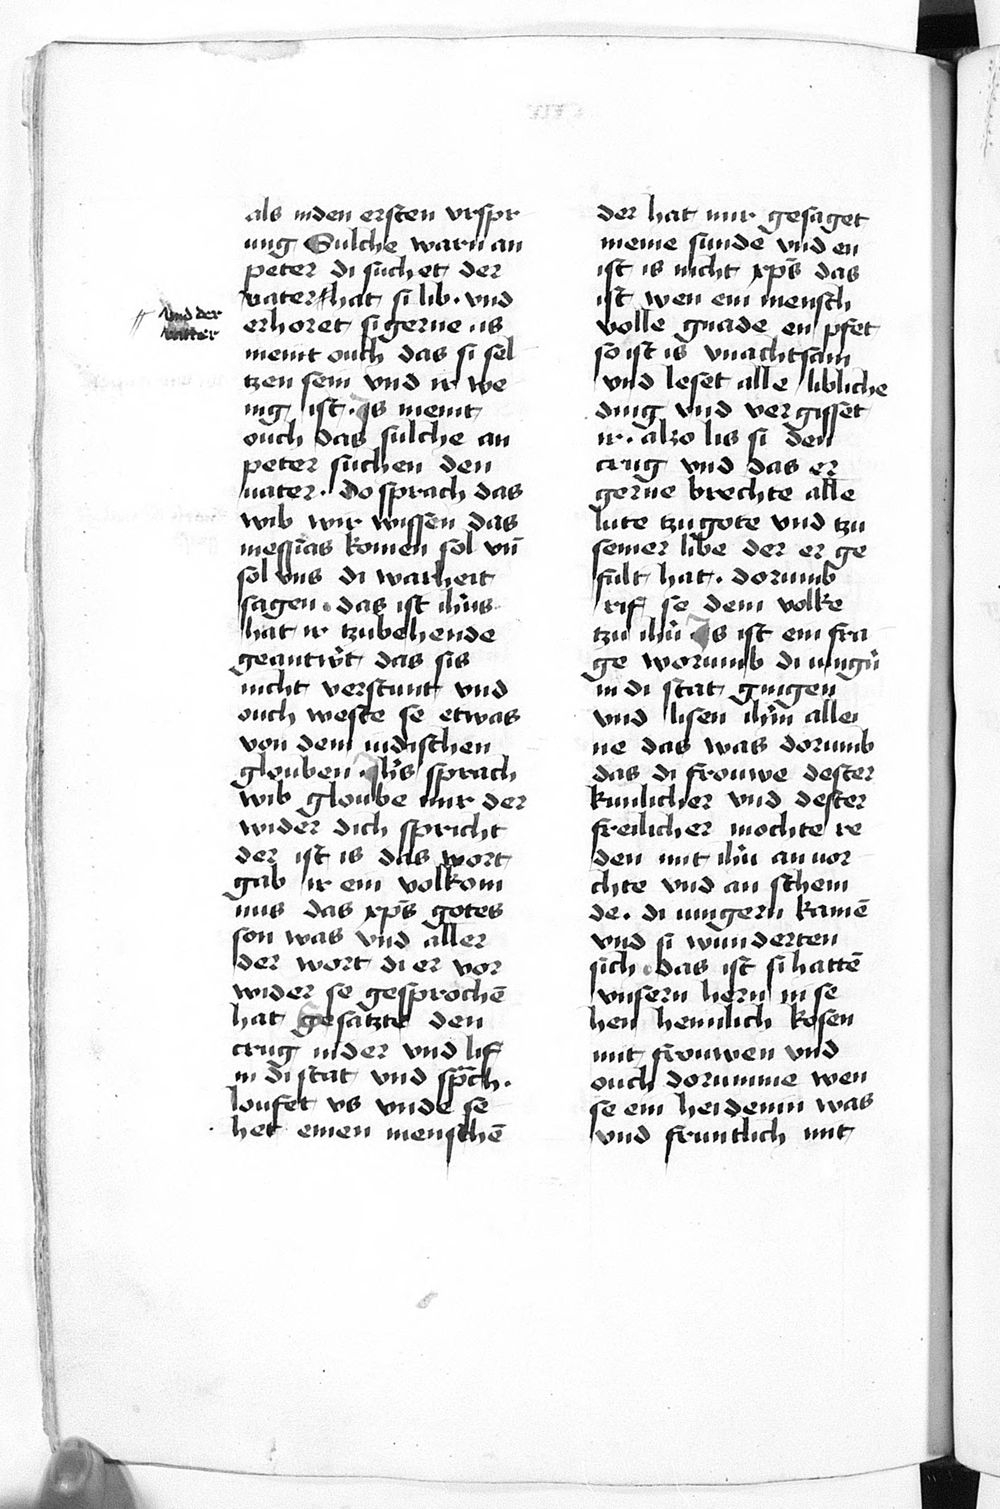 als inden ersten vrspr
ung Sulche warn an
peter di suchet der
vater hat si lib · vnd
vnd der
vatter
erhoret si gerne is
meint ouch das si sel
tzen sein vnd ir we
nig ist · Is meint
ouch das sulche an
peter suchen den
uater · Do sprach das
wib wir wissen das
messias komen sol vn̄
sol vns di warheit
sagen · das ist ihūs
hat ir tzubehende
geantwt das sis
nicht verstunt vnd
ouch weste se etwas
von dem iudischen
glouben Ihs̄ sprach
wib gloube mir der
wider dich spricht
der ist is das wort
gab ir ein volkom
nus das xps̄ gotes
son was vnd aller
der wort di er vor
wider se gesprochē
hat Gesatzte den
crug nider vnd lif
in di stat vnd sp̄ch ·
loufet vs vnde se
het einen menschē
der hat mir gesaget
meine sunde vnd en
ist is nicht xps̄ das
ist wen ein mensch
volle gnade en pfet
so ist is vnachtsam
vnd leset alle libliche
ding vnd vergisset
ir · alzo lis si den
crug vnd das er
gerne brechte alle
lute tzu gote vnd tzu
seiner libe der er ge
fult hat · dorumb
rif se dem volke
tzu ihū Is ist ein fra
ge worumb di iungū
in di stat gingen
vnd lisen ihm̄ allei
ne das was dorumb
das di frouwe dester
kunlicher vnd dester
freilicher mochte re
den mit ihū an vor
chte vnd an schem
de · di iungern kamē
vnd si wunderten
sich · das ist si hattē
vnsern hern in se
hen heimlich kosen
mit frouwen vnd
ouch dorumme wen
se ein heidenin was
vnd fruntlich mit